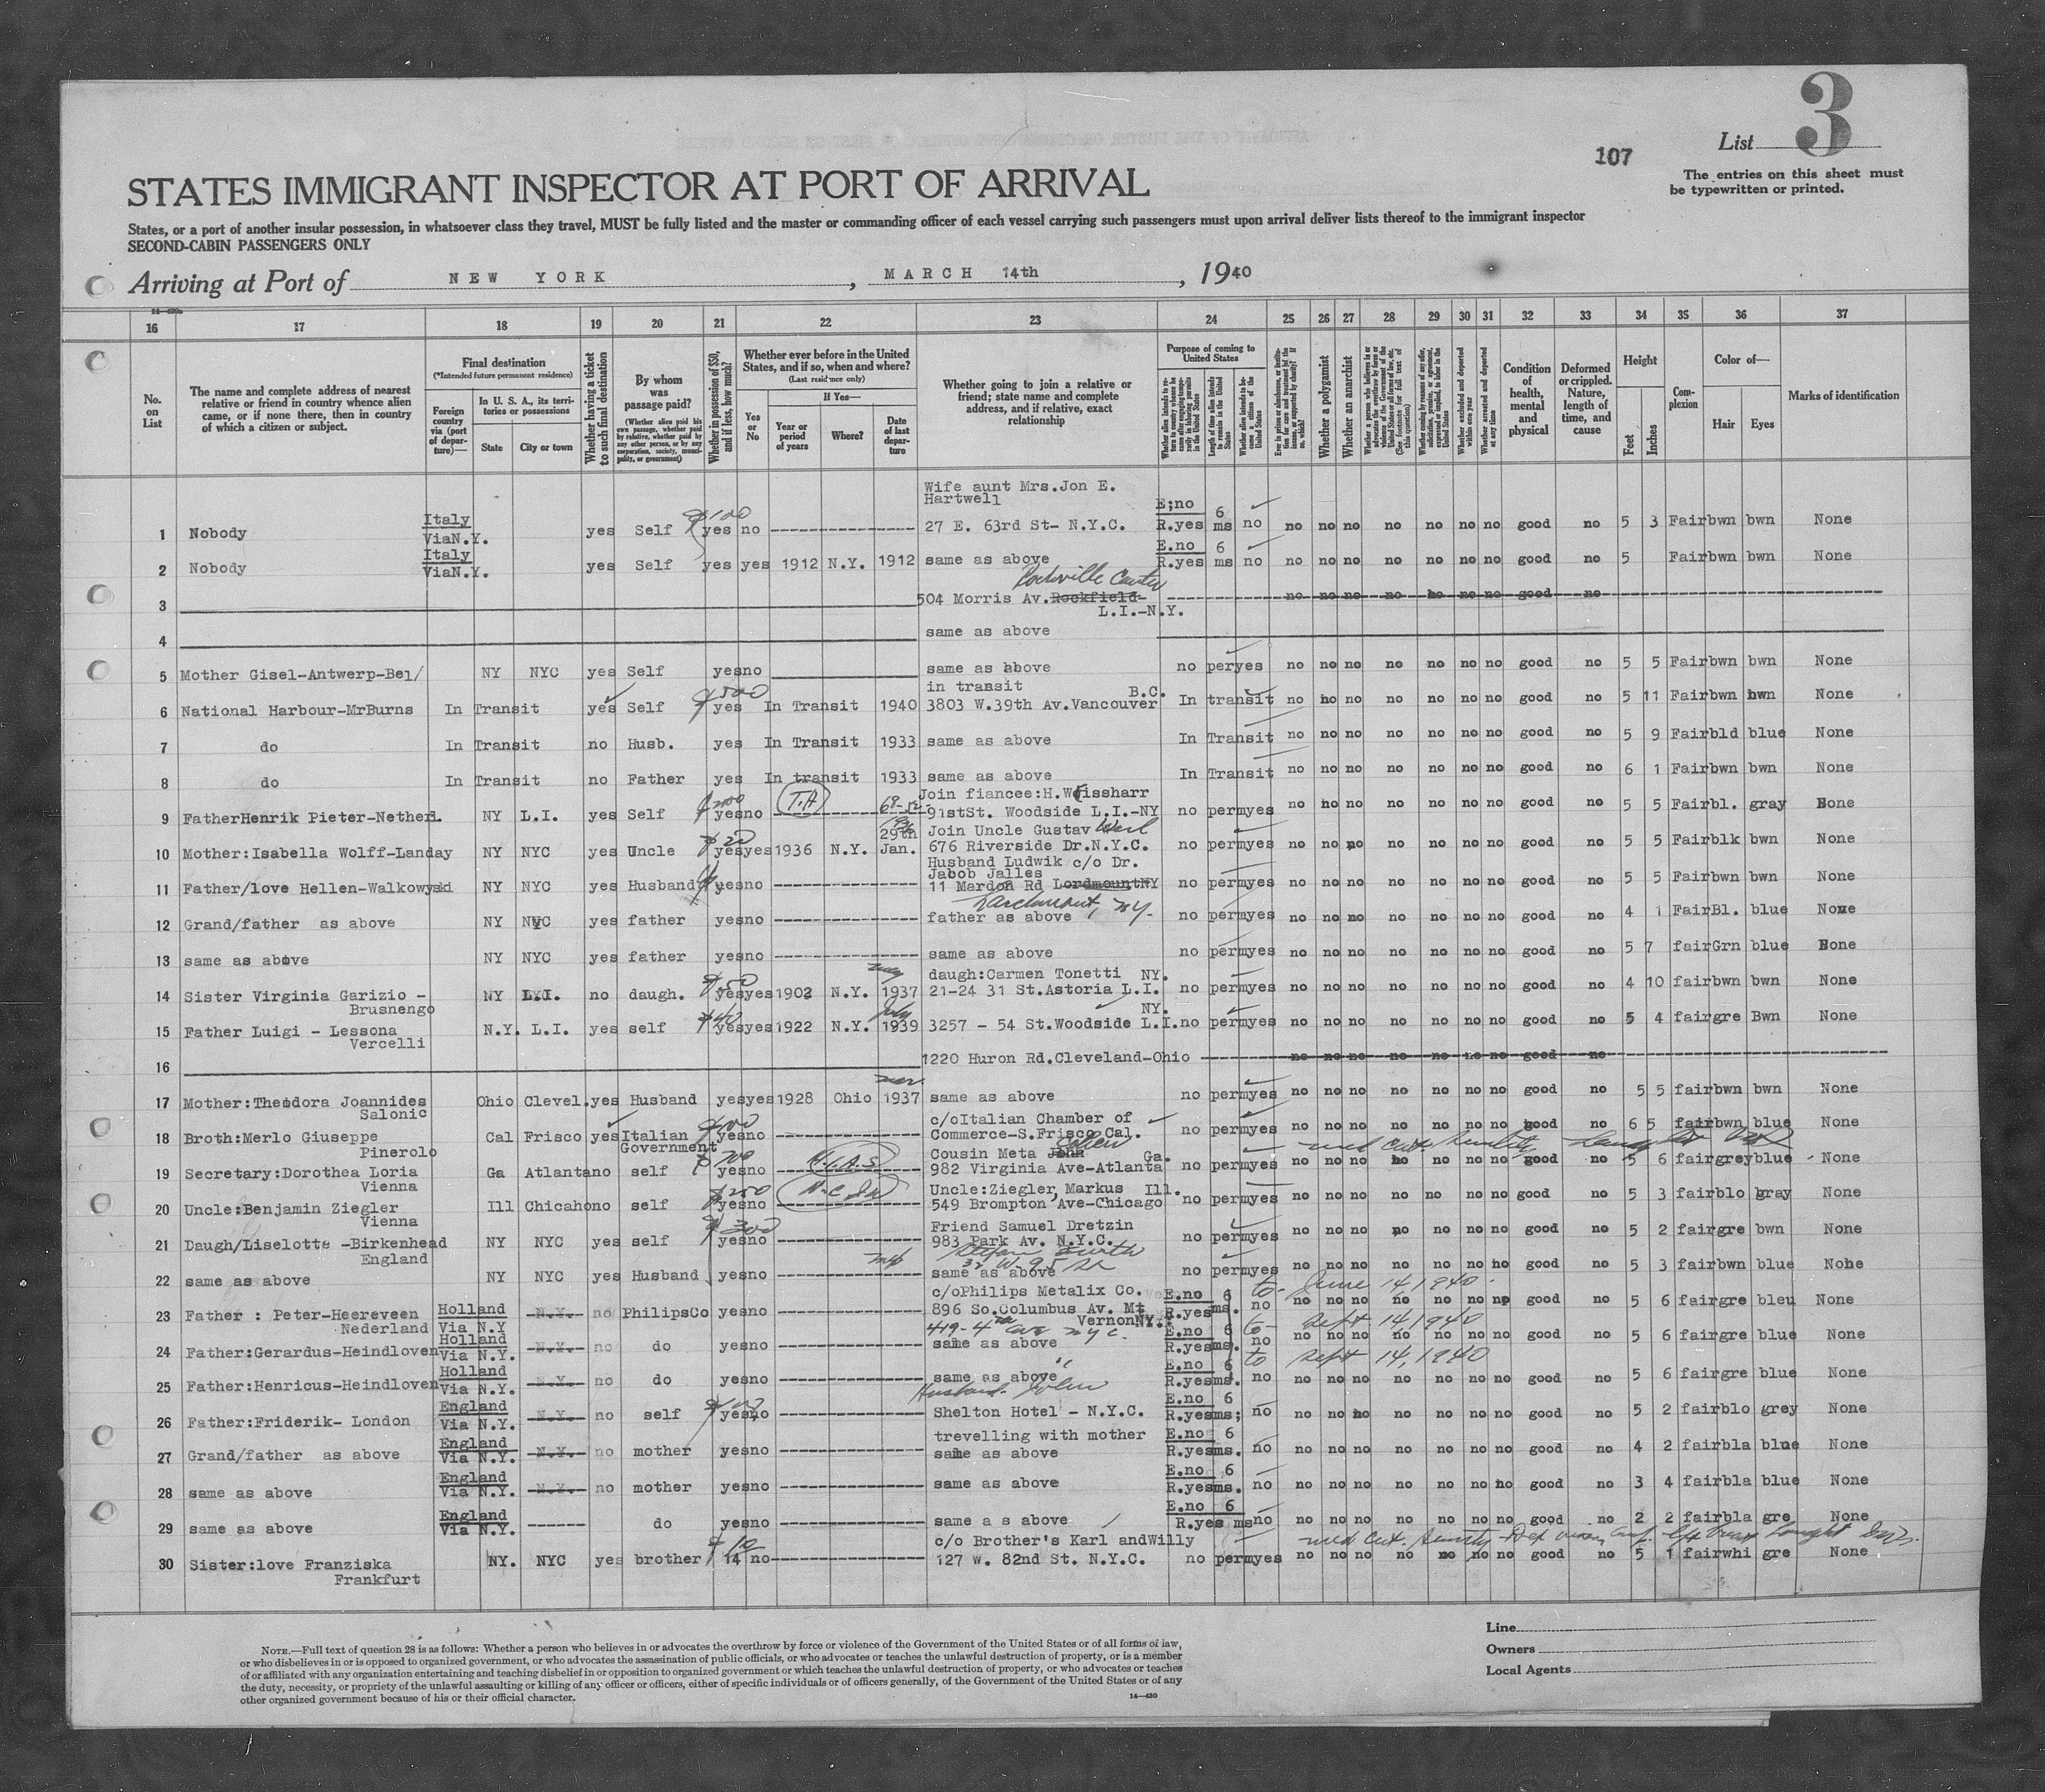 3
List
107
The entries on this sheet must
be typewritten or printed.
STATES IMMIGRANT INSPECTOR AT PORT OF ARRIVAL
States, or a port of another insular possession, in whatsoever class they travel, MUST be fully listed and the master or commanding officer of each vessel carrying such passengers must upon arrival deliver lists thereof to the immigrant inspector
SECOND-CABIN PASSENGERS ONLY
Arriving at Port of NEW YORK, MARCH 14th, 1940
16 17 18 19 20 21 22 23 24 25 26 27 28 29 30 31 32 33 34 35 36 37
No. on List
The name and complete address of nearest relative or friend in country whence alien came, or if none there, then in country of which a citizen or subject.
Final destination
(*Intended future permanent residence)
Foreign country via (port of departure)—
In U. S. A., its territories or possessions
State
City or town
Whether having a ticket to such final destination
By whom was passage paid?
(Whether alien paid his own passage, whether paid by relative, whether paid by any other person, or by any corporation, society, municipality, or government)
Whether in possession of $50, and if less, how much?
Whether ever before in the United States, and if so, when and where?
(Last residence only)
Yes or No
If Yes—
Year or period of years
Where?
Date of last departure
Whether going to join a relative or friend; state name and complete address, and if relative, exact relationship
Purpose of coming to United States
Length of time alien intends to remain in the United States
Whether alien intends to become a citizen of the United States
Whether a polygamist
Whether an anarchist
Whether excluded and deported within one year
Whether arrested and deported at any time
Condition of health, mental and physical
Deformed or crippled. Nature, length of time, and cause
Height
Feet
Inches
Complexion
Color of—
Hair
Eyes
Marks of identification
Wife aunt Mrs.Jon E.
Hartwell
1 Nobody Italy ViaN.Y. yes Self $100 yes no 27 E. 63rd St- N.Y.C. E;no R.yes 6 ms no no no no no no no no good no 5 3 Fair bwn bwn None
2 Nobody Italy ViaN.Y. yes Self yes yes 1912 N.Y. 1912 same as above E.no R.yes 6 ms no no no no no no no no good no 5 Fair bwn bwn None
Rockville Center
3 504 Morris Av.Rockfield- no no no no no no no good no
L.I.-N.Y.
4 same as above
5 Mother Gisel-Antwerp-Bel/ NY NYC yes Self yesno same as above no peryes no no no no no no no good no 5 5 Fair bwn bwn None
in transit B.C.
6 National Harbour-MrBurns In Transit yes Self $500 yes In Transit 1940 3803 W.39th Av.Vancouver In transit no no no no no no no good no 5 11 Fair bwn bwn None
7 do In Transit no Husb. yes In Transit 1933 same as above In Transit no no no no no no no good no 5 9 Fair bld blue None
8 do In Transit no Father yes In transit 1933 same as above In Transit no no no no no no no good no 6 1 Fair bwn bwn None
Join fiancee:H.Weissharr
9 FatherHenrik Pieter-Netherl. NY L.I. yes Self yesno (T.A) 68-52- 91stSt. Woodside L.I.-NY no permyes no no no no no no no good no 5 5 Fair bl. gray None
29th Join Uncle Gustav Weil
10 Mother:Isabella Wolff-Landay NY NYC yes Uncle $20 yesyes 1936 N.Y. Jan. 676 Riverside Dr.N.Y.C. no permyes no no no no no no no good no 5 5 Fair blk bwn None
Husband Ludwik c/o Dr.
Jabob Jalles
11 Father/love Hellen-Walkowyski NY NYC yes Husband yesno 11 Mardon Rd LordmountNY no permyes no no no no no no no good no 5 5 Fair bwn bwn None
Larchmont, NY.
12 Grand/father as above NY NYC yes father yesno father as above no permyes no no no no no no no good no 4 1 Fair Bl. blue None
13 same as above NY NYC yes father yesno same as above no permyes no no no no no no no good no 5 7 fair Grn blue None
daugh:Carmen Tonetti NY.
14 Sister Virginia Garizio - NY L.I. no daugh. $50 yesyes 1902 N.Y. may 1937 21-24 31 St.Astoria L.I. no permyes no no no no no no no good no 4 10 fair bwn bwn None
Brusnengo
NY.
15 Father Luigi - Lessona N.Y. L.I. yes self $40 yesyes 1922 N.Y. July 1939 3257 - 54 St.Woodside L.I. no permyes no no no no no no no good no 5 4 fair gre Bwn None
Vercelli
16 1220 Huron Rd.Cleveland-Ohio no no no no no no no good no
17 Mother:Theodora Joannides Ohio Clevel. yes Husband yesyes 1928 Ohio 1937 same as above no permyes no no no no no no no good no 5 5 fair bwn bwn None
Salonic
c/oItalian Chamber of
18 Broth:Merlo Giuseppe Cal Frisco yes Italian Government yesno Commerce-S.Frisco Cal. no permyes no no no no no no no good no 6 5 fair bwn blue None
Pinerolo
Cousin Meta John Ga.
19 Secretary:Dorothea Loria Ga Atlanta no self yesno (H.I.A.S) 982 Virginia Ave-Atlanta no permyes no no no no no no no good no 5 6 fair grey blue None
Vienna
Uncle:Ziegler, Markus Ill.
20 Uncle:Benjamin Ziegler Ill Chicaho no self $250 yesno 549 Brompton Ave-Chicago no permyes no no no no no no no good no 5 3 fair blo gray None
Vienna
Friend Samuel Dretzin
21 Daugh/Liselotte -Birkenhead NY NYC yes self $300 yesno 983 Park Av. N.Y.C. no permyes no no no no no no no good no 5 2 fair gre bwn None
England
Stefan Furth
32 W-95 St
22 same as above NY NYC yes Husband yesno same as above no permyes no no no no no no no good no 5 3 fair bwn blue None
c/oPhilips Metalix Co. to- June 14,1940
23 Father : Peter-Heereveen Holland Via N.Y N.Y. no PhilipsCo yesno 896 So.Columbus Av. Mt E.no R.yes 6 ms. no no no no no no no no good no 5 6 fair gre bleu None
Nederland VernonNY.
419-4th Ave NYC. to- Sept 14,1940
24 Father:Gerardus-Heindloven Holland Via N.Y. N.Y. no do yesno same as above E.no R.yes 6 ms. no no no no no no no no good no 5 6 fair gre blue None
to Sept 14,1940
25 Father:Henricus-Heindloven Holland Via N.Y. N.Y. no do yesno same as above E.no R.yes 6 ms. no no no no no no no no good no 5 6 fair gre blue None
Husband John
26 Father:Friderik- London England Via N.Y. N.Y. no self yesno Shelton Hotel - N.Y.C. E.no R.yes 6 ms; no no no no no no no no good no 5 2 fair blo grey None
trevelling with mother
27 Grand/father as above England Via N.Y. N.Y. no mother yesno same as above E.no R.yes 6 ms. no no no no no no no no good no 4 2 fair bla blue None
28 same as above England Via N.Y. N.Y. no mother yesno same as above E.no R.yes 6 ms. no no no no no no no no good no 3 4 fair bla blue None
29 same as above England Via N.Y. do yesno same a s above E.no R.yes 6 ms no no no no no no no no good no 2 2 fair bla gre None
c/o Brother's Karl andWilly
30 Sister:love Franziska NY. NYC yes brother $10 14 no 127 W. 82nd St. N.Y.C. no permyes no no no no no no no good no 5 1 fair whi gre None
Frankfurt
NOTE.—Full text of question 28 is as follows: Whether a person who believes in or advocates the overthrow by force or violence of the Government of the United States or of all forms of law,
or who disbelieves in or is opposed to organized government, or who advocates the assassination of public officials, or who advocates or teaches the unlawful destruction of property, or is a member
of or affiliated with any organization entertaining and teaching disbelief in or opposition to organized government or which teaches the unlawful destruction of property, or who advocates or teaches
the duty, necessity, or propriety of the unlawful assaulting or killing of any officer or officers, either of specific individuals or of officers generally, of the Government of the United States or of any
other organized government because of his or their official character.
14—430
Line
Owners
Local Agents